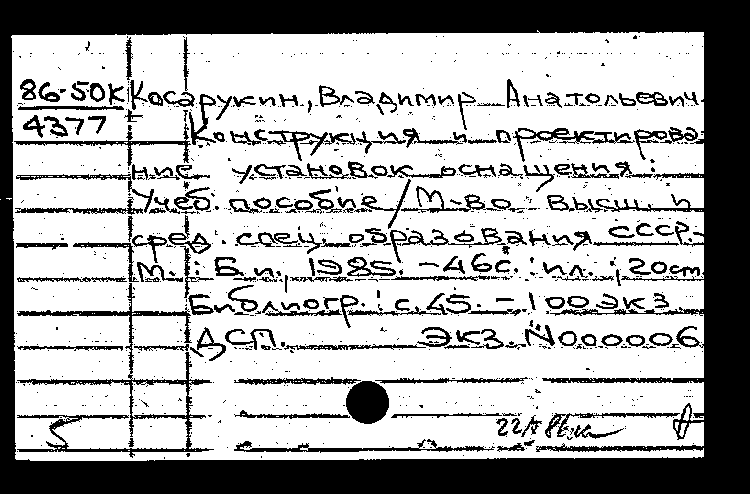 86-50К Косарукин, Владимир Анатольевич
4377 Конструкция и проектирова-
ние установок оснащения :
Учеб. пособие / М-во высш. и
сред. спец. образования СССР.-
М. : Б.и., 1985. - 46с. : ил. ; 20см.
Библиогр.: с.45. - 100 экз
ДСП. экз. N000006
5